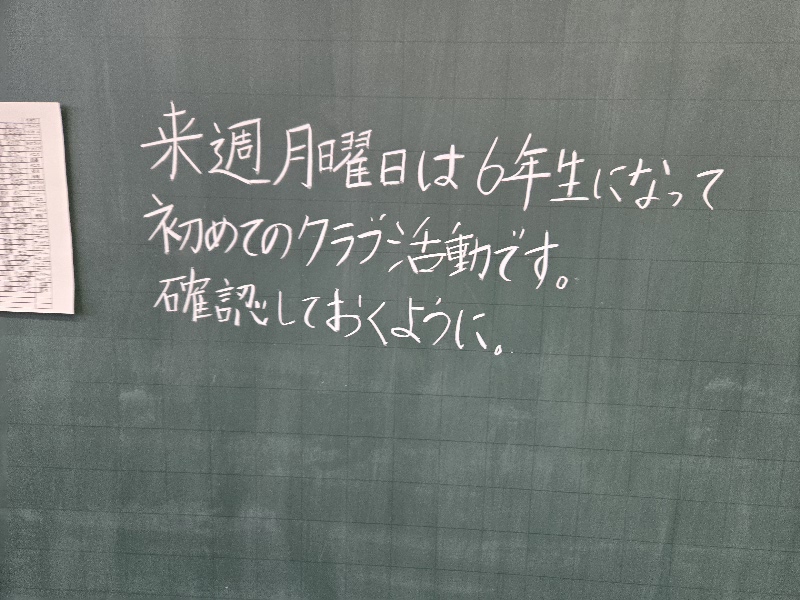 来週月曜日は6年生になって
初めてのクラブ活動です。
確認しておくように。